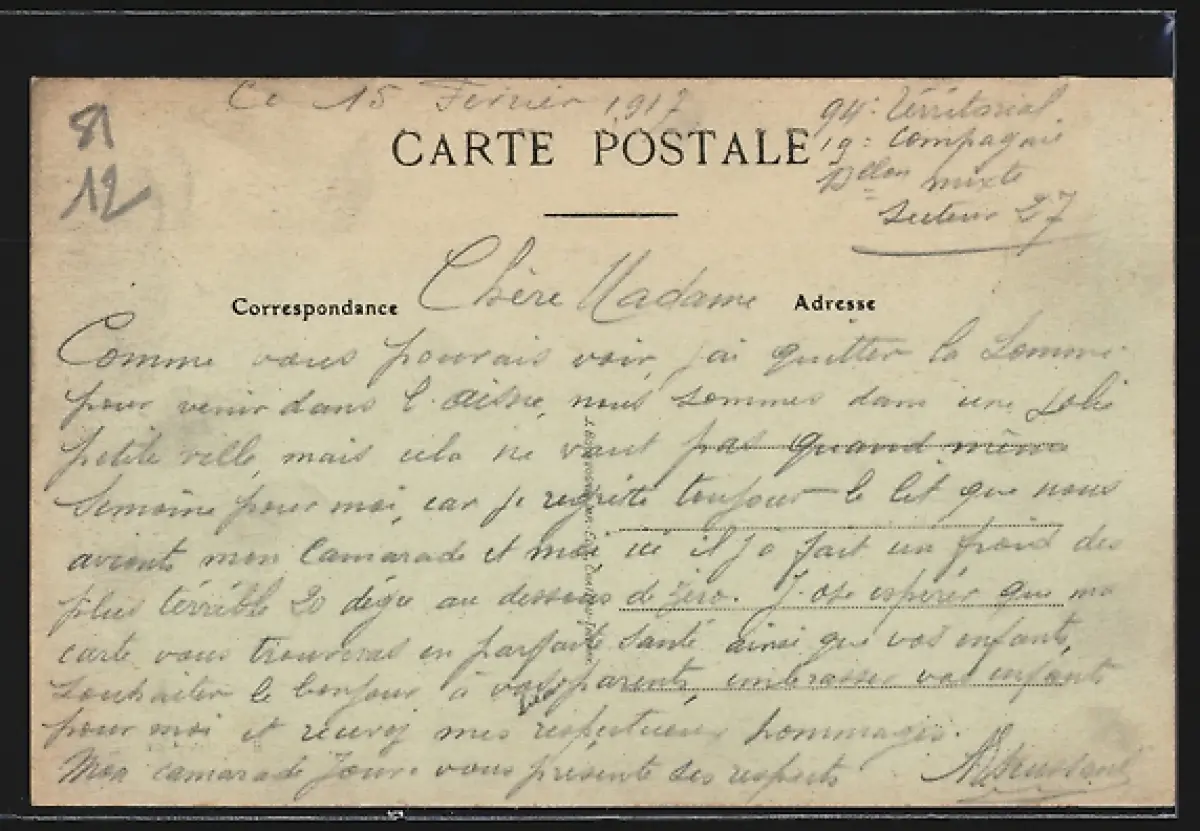 Ce 15 Fevrier 1917
94e Térritorial
19e Compagnie
Dellon mixte
Secteur 27
81
12
CARTE POSTALE
Correspondance
Adresse
Chère Madame
Comme vous pourais voir, j'ai quitter la Somme
pour venir dans l'aisne, nous sommes dans une jolie
petite ville, mais cela ne vaut pas quand même
pour moi, car je regrète toujour le lit que nous
avions mon Camarade et moi ici il y a fait un froid des
plus térrible 20 dégré au dessous de zéro. J'ose espérér que ma
carte vous trouveras en parfaite santé ainsi que vos enfants,
Souhaiter le bonjour à vos parents, embrasser vos enfants
pour moi et recevez mes respectueux hommages.
Mon camarade vous présente ses respects